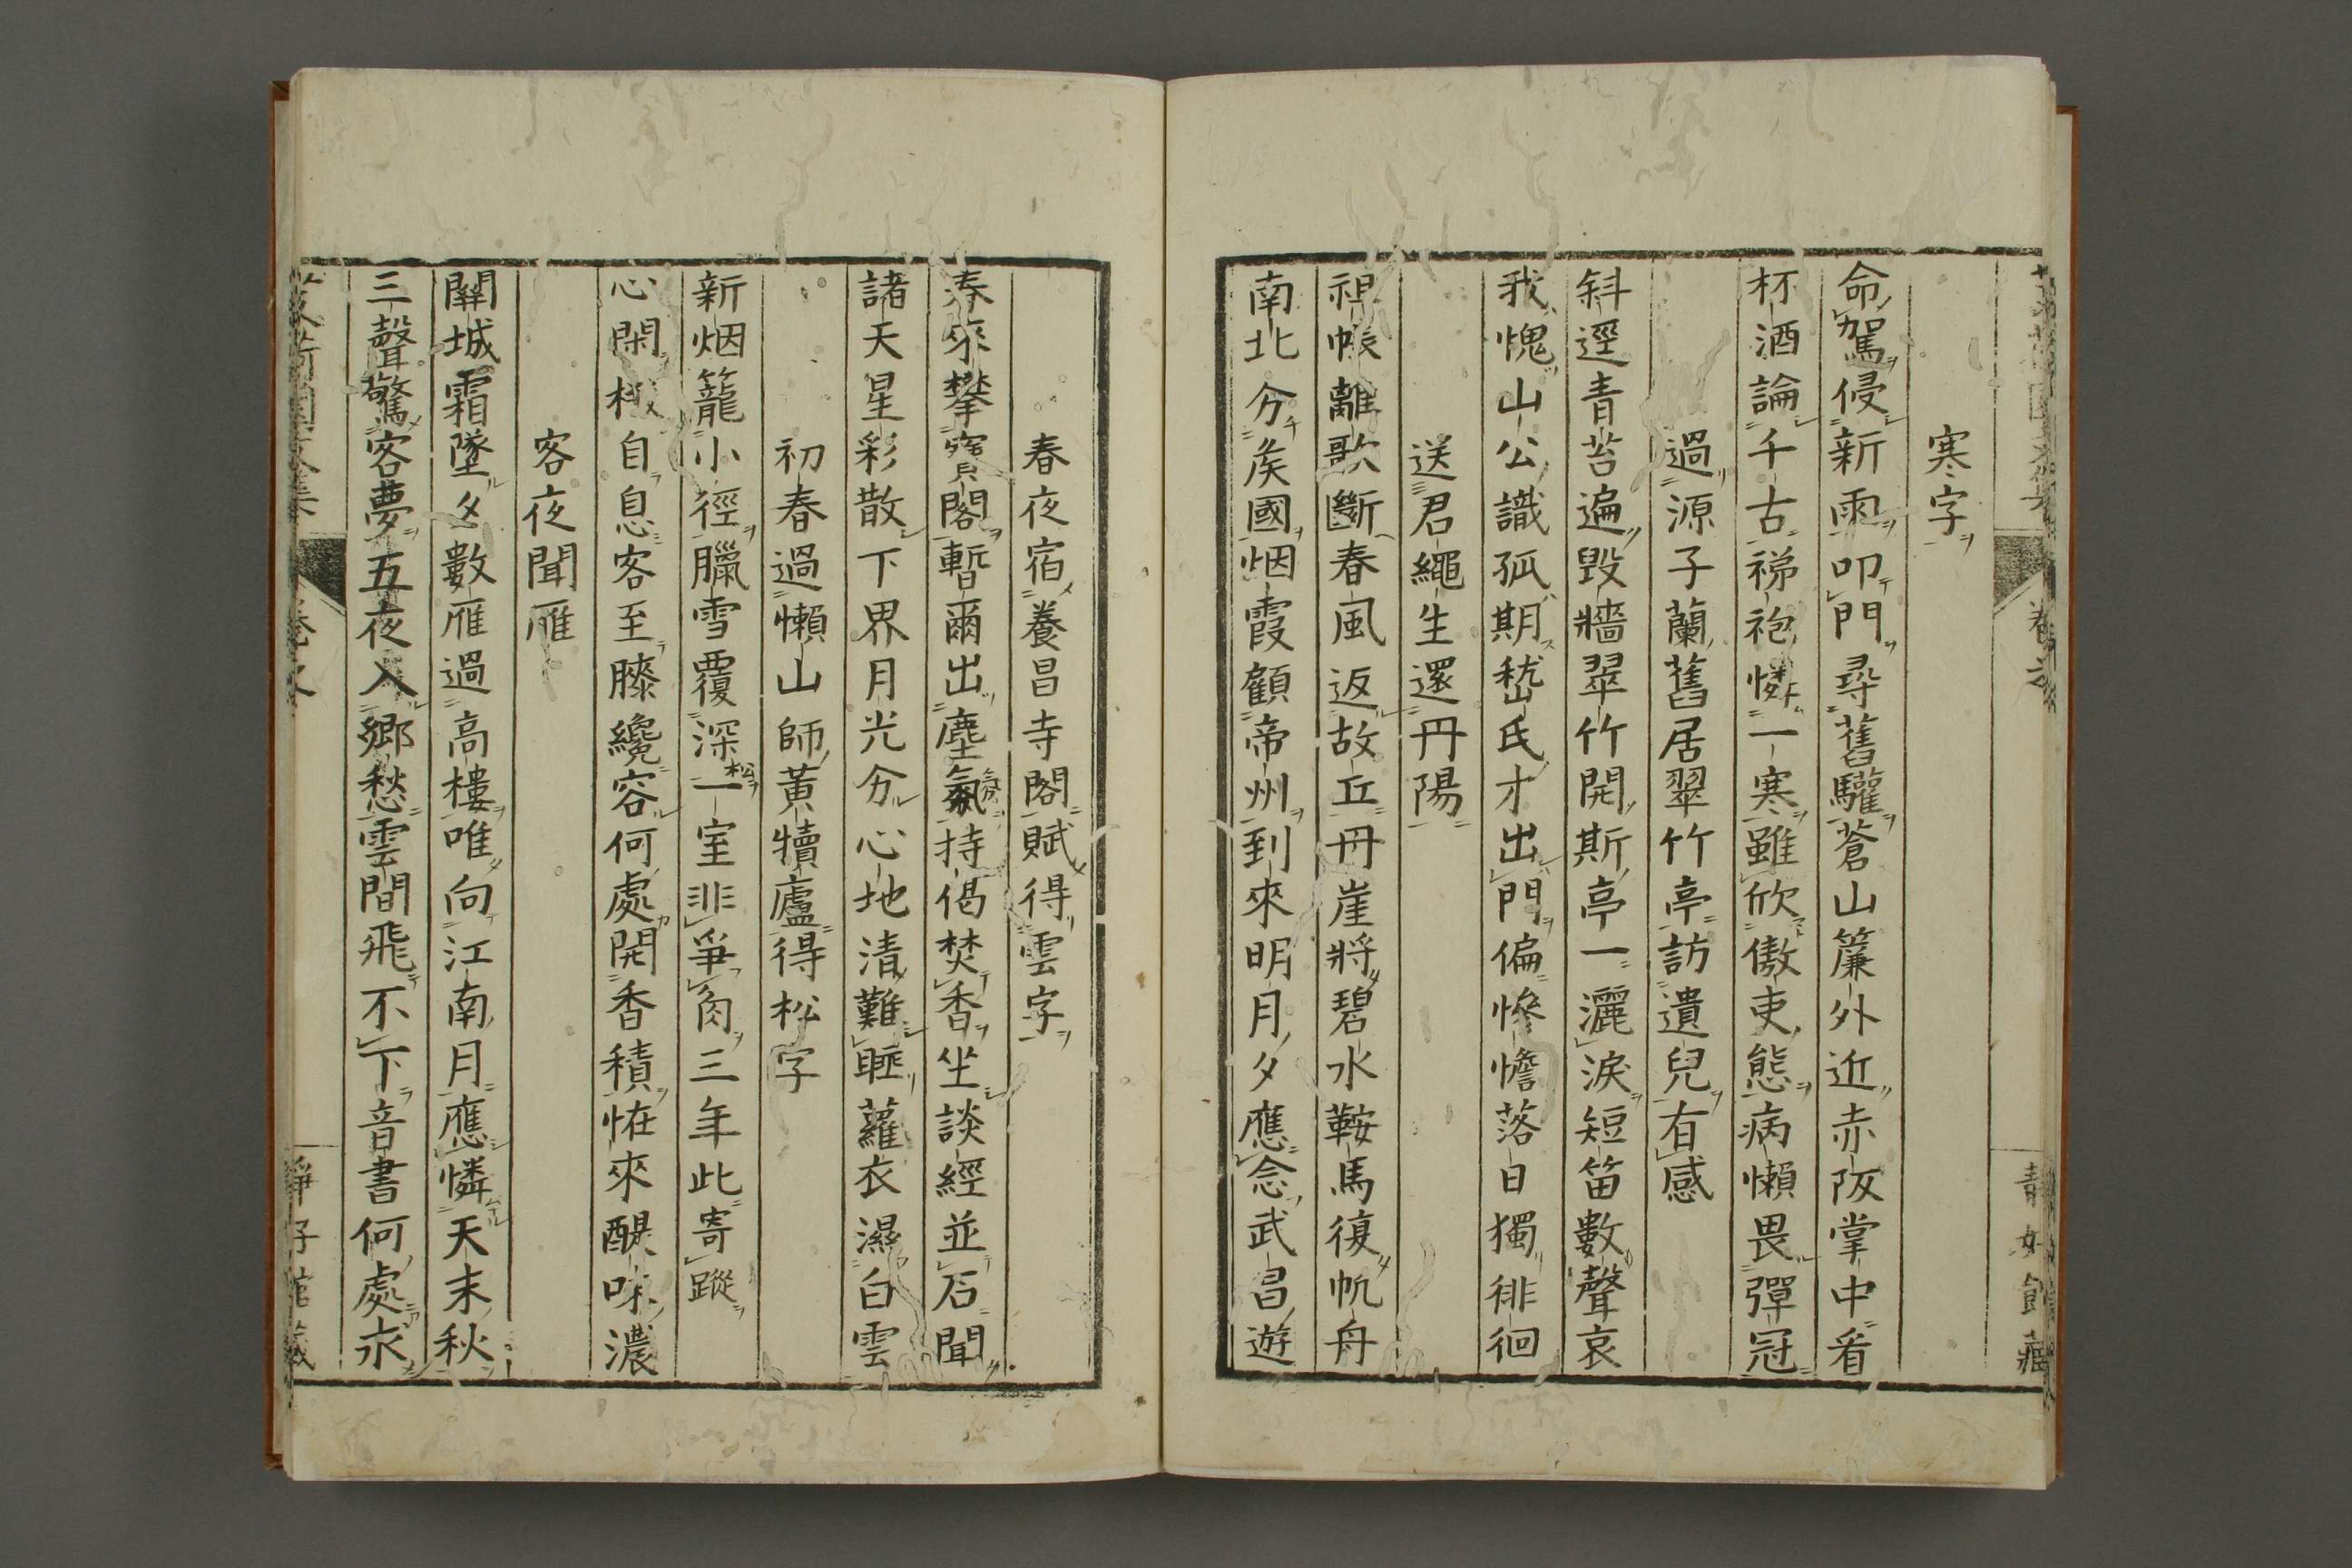 寒字
命駕侵新雨叩門尋舊驩蒼山簾外近赤阪掌中看
杯酒論千古祶袍憐一寒雖欣傲吏態病懶畏彈冠
過源子蘭舊居翠竹亭訪遺兒有感
斜逕青苔遍毀牆翠竹開斯亭一灑淚短笛數聲哀
我愧山公識孤期嵇氏才出門偏慘憺落日獨徘徊
送君繩生還丹陽
祖帳離歌斷春風返故丘丹崖將碧水鞍馬復帆舟
南北分矦國烟霞顧帝州到來明月夕應念武昌遊
春夜宿養昌寺閣賦得雲字
春來攀寶閣暫爾出塵氛持偈焚香坐談經並石聞
諸天星彩散下界月光分心地清難睡蘿衣濕白雲
初春過懶山師黃犢廬得松字
新烟籠小徑臘雪覆深松一室非爭肉三年此寄蹤
心閑機自息客至膝纔容何處開香積恠來醍味濃
客夜聞雁
關城霜墜夕數雁過高樓唯向江南月應憐天末秋
三聲驚客夢五夜入鄉愁雲間飛不下音書何處求